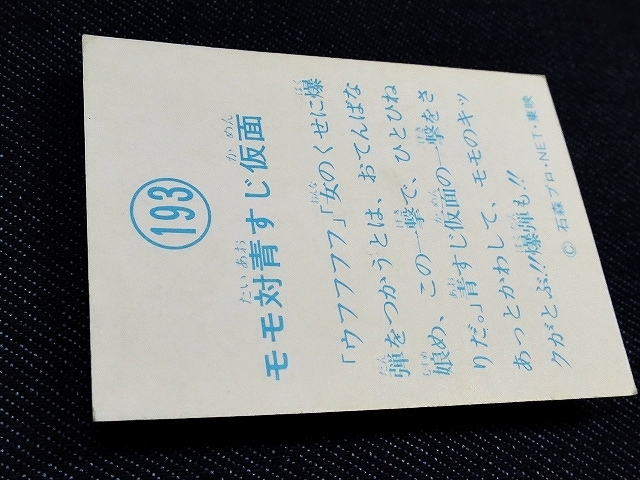 193
モモ対青すじ仮面
「ウフフフフ」「女のくせに爆
弾をつかうとは、おてんばな
娘め、この一撃で、ひとひね
りだ。」青すじ仮面の一撃をさ
あっとかわして、モモのキッ
クがとぶ!!爆弾も!!
© 石森プロ・NET・東映